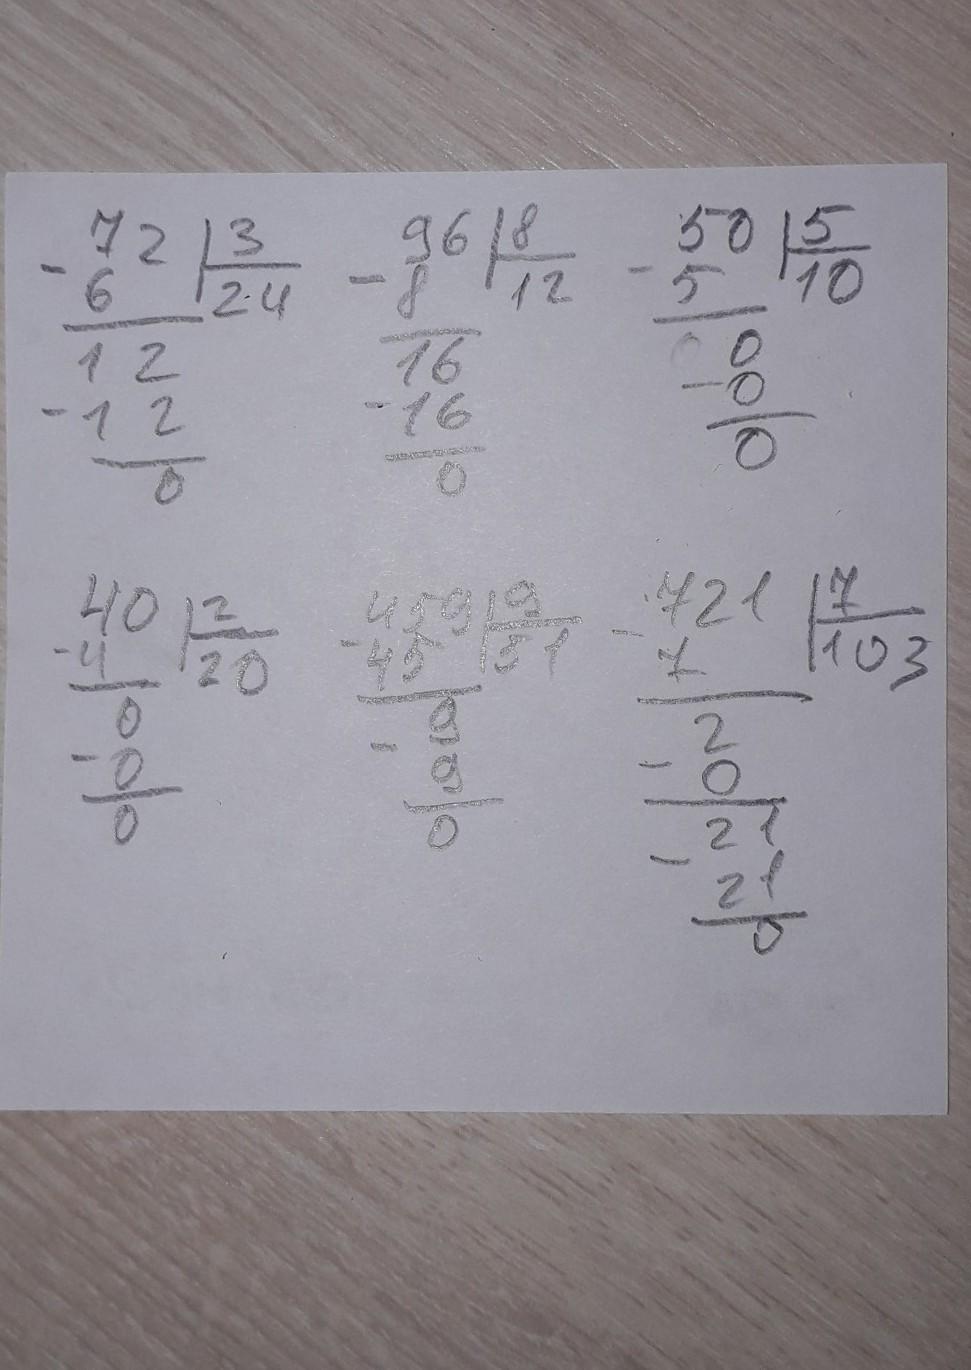 72 3
- 6 24
12
- 12
0
96 8
- 8 12
16
- 16
0
50 5
- 5 10
0 0
- 0
0
40 2
- 4 20
0
- 0
0
459 9
- 45 51
9
- 9
0
721 7
- 7 103
2
- 0
21
- 21
0